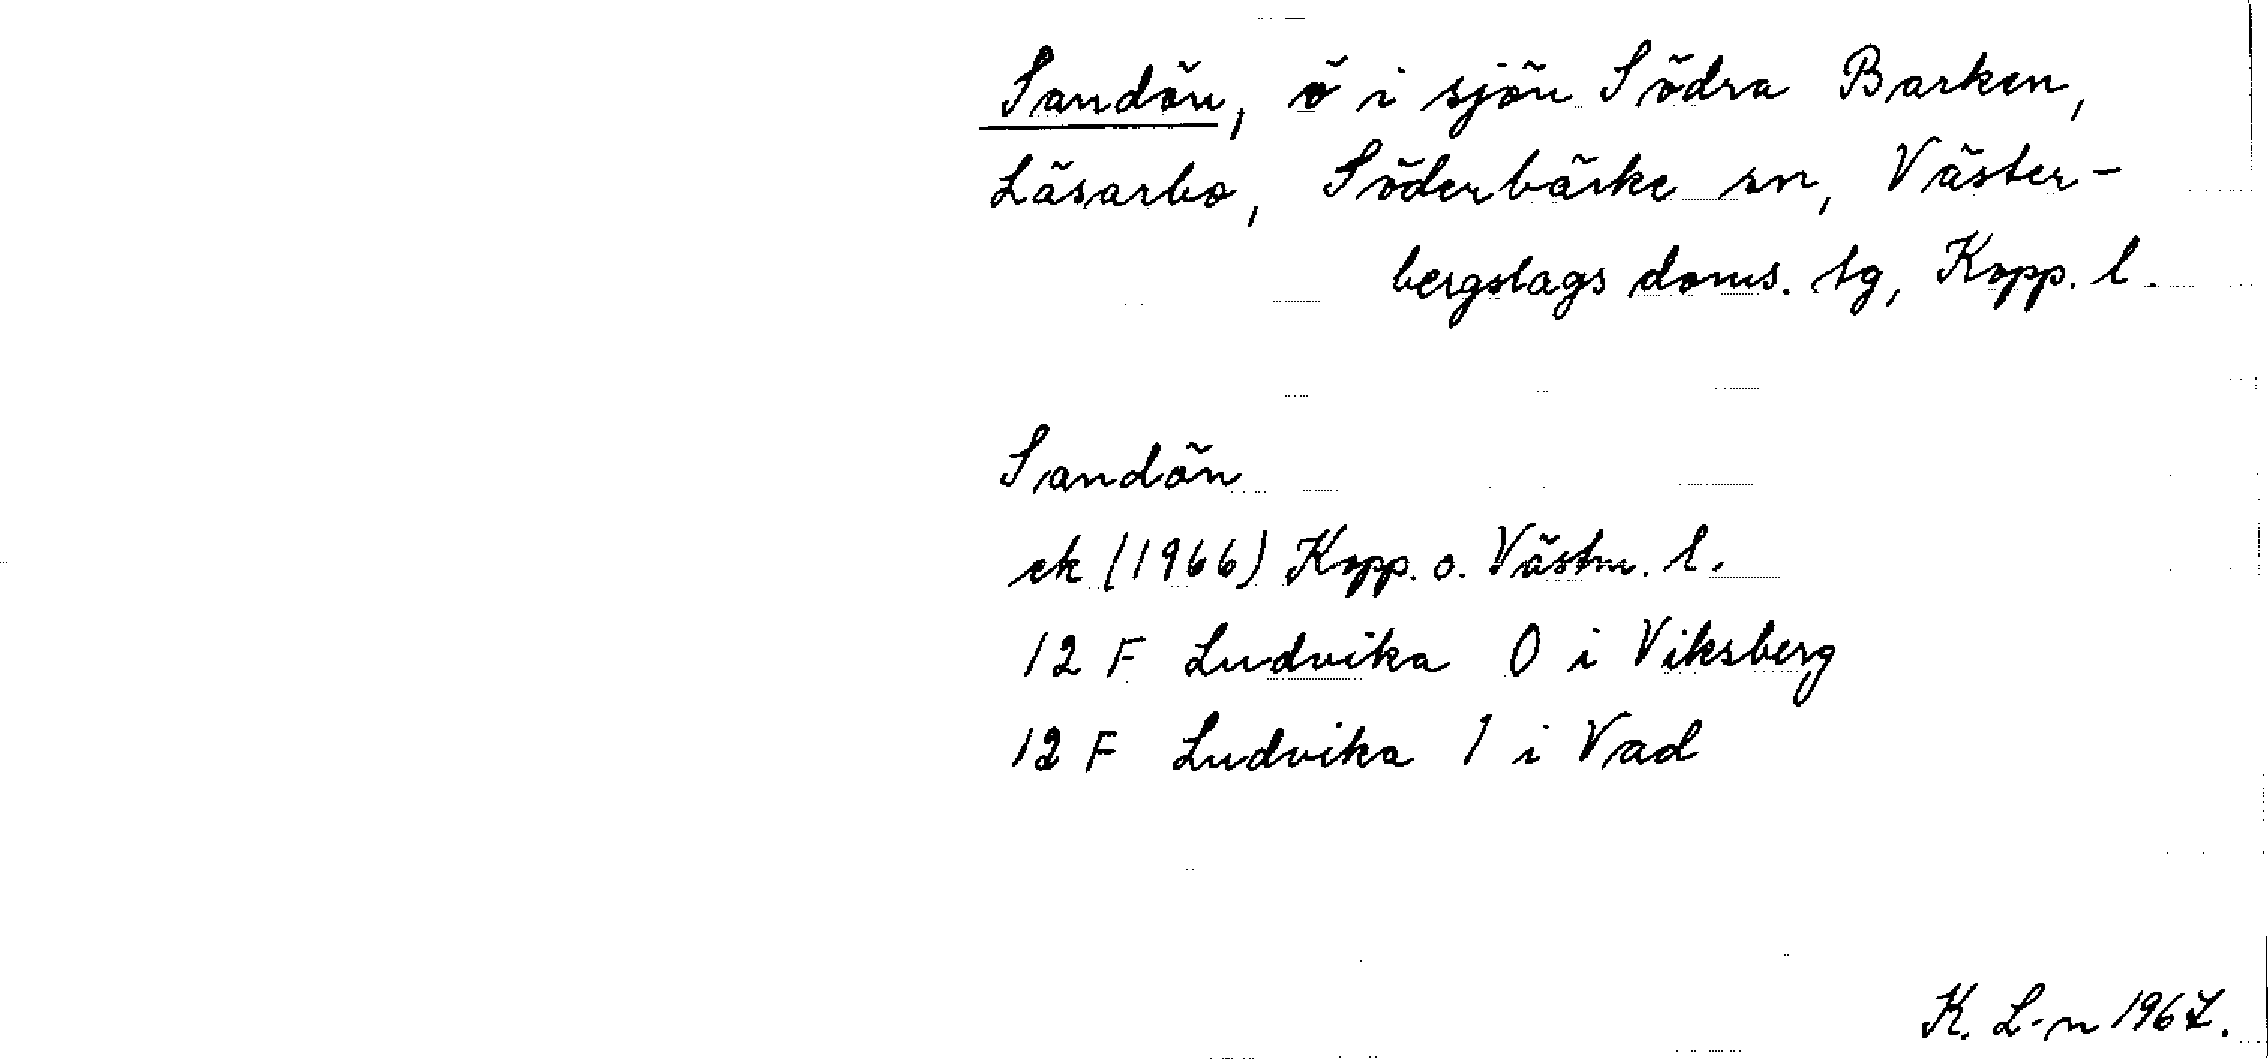 Sandön, ö i sjön Södra Barken,
Läsarbo, Söderbärke sn, Väster-
bergslags doms. tg, Kopp. l.
Sandön
ek (1966) Kopp. o. Västm. l.
12 F Ludvika 0 i Viksberg
12 F Ludvika 1 i Vad
K. L-n 1967.